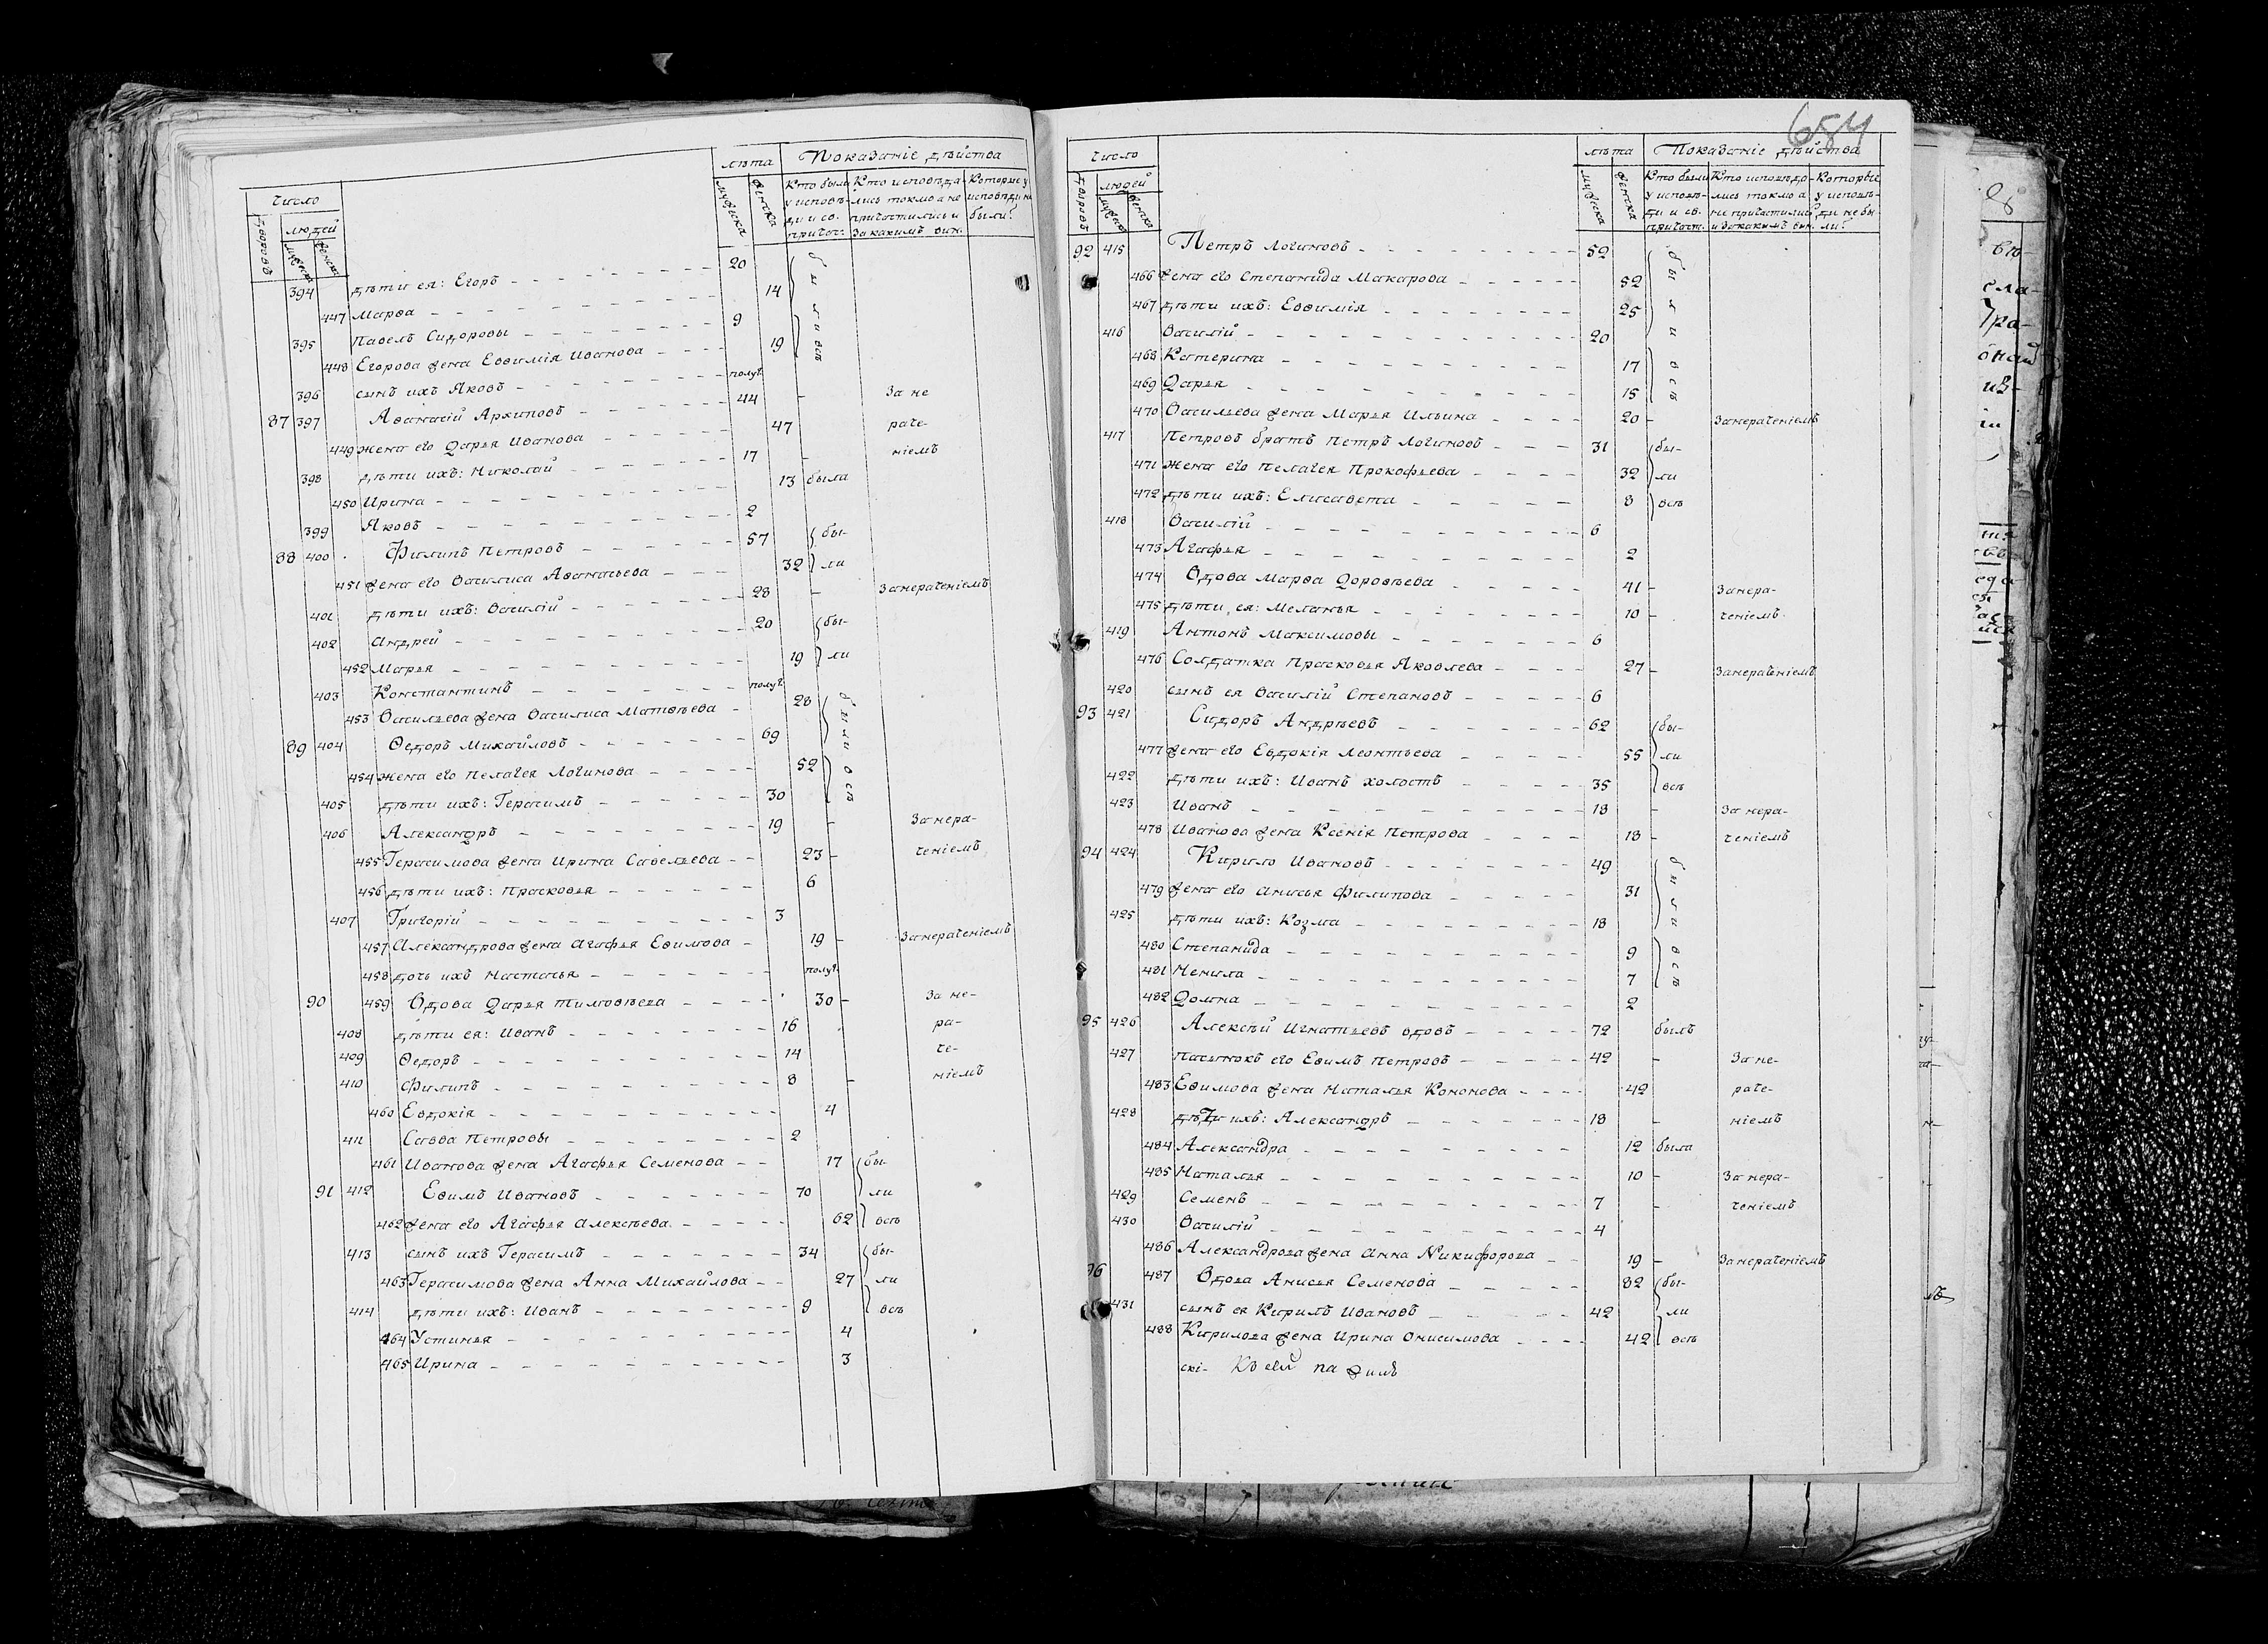 Число
лѣта
Показаніе дѣйства
дворовъ
людей
мужеска
женска
мужеска
женска
Кто были у исповѣди и св. причас:
Кто исповѣдались токмо а не причастились и за какимъ вин.
Которые у исповѣди не были?
394 дѣти ея: Егоръ 20
447 Марѳа 14 были всѣ
395 Павелъ Сидоровы 9
448 Егорова жена Евѳимія Иванова 19
396 сынъ ихъ Яковъ полуг.
87 397 Аѳанасій Архиповъ 44 - За не
449 жена его Дарья Иванова 47 раче-
398 дѣти ихъ: Николай 17 - ніемъ
450 Ирина 13 была
399 Яковъ 2
88 400 Филипъ Петровъ 57 бы-
451 жена его Василиса Аѳанасьева 32 ли
401 дѣти ихъ: Василій 28 - Занераченіемъ
402 Андрей 20 бы-
452 Марья 19 ли
403 Константинъ полуг.
453 Васильева жена Василиса Матвѣева 28 были всѣ
89 404 Ѳедоръ Михайловъ 69
454 жена его Пелагея Логинова 52
405 дѣти ихъ: Герасимъ 30
406 Александръ 19 - За нера-
455 Герасимова жена Ирина Савельева 23 - ченіемъ
456 дѣти ихъ: Прасковья 6
407 Григорій 3
457 Александрова жена Агафья Евимова 19 - Занераченіемъ
458 дочь ихъ Настасья полуг.
90 459 Вдова Дарья Тимоѳѣева 30 - За не-
408 дѣти ея: Иванъ 16 ра-
409 Ѳедоръ 14 че-
410 Филипъ 8 - ніемъ
460 Евдокія 4
411 Савва Петровы 2
461 Иванова жена Агафья Семенова 17 бы-
91 412 Евимъ Ивановъ 70 ли
462 жена его Агафья Алексѣева 62 всѣ
413 сынъ ихъ Герасимъ 34 бы-
463 Герасимова жена Анна Михайлова 27 ли
414 дѣти ихъ: Иванъ 9 всѣ
464 Устинья 4
465 Ирина 3
654
Число
лѣта
Показаніе дѣйства
дворовъ
людей
мужеска
женска
мужеска
женска
Кто были у исповѣди и св. причаст.
Кто исповѣдались токмо а не причастились и за какимъ вин.
Которые у исповѣди не были?
92 415 Петръ Логиновъ 52 были всѣ
466 жена его Степанида Макарова 52
467 дѣти ихъ: Евѳимія 25
416 Василій 20
468 Катерина 17
469 Дарья 15
470 Васильева жена Марья Ильина 20 - Занераченіемъ
417 Петровъ братъ Петръ Логиновъ 31 бы-
471 жена его Пелагея Прокофьева 32 ли
472 дѣти ихъ: Елисавета 8 всѣ
418 Василій 6
473 Агафья 2
474 Вдова Марѳа Дороѳѣева 41 - Занера-
475 дѣти ея: Меланья 10 - ченіемъ
419 Антонъ Максимовы 6
476 Солдатка Прасковья Яковлева 27 - Занераченіемъ
420 сынъ ея Василій Степановъ 6
93 421 Сидоръ Андрѣевъ 62 бы-
477 жена его Евдокія Леонтьева 55 ли
422 дѣти ихъ: Иванъ холостъ 35 всѣ
423 Иванъ 18 - За нера-
478 Иванова жена Ксенія Петрова 18 - ченіемъ
94 424 Кирило Ивановъ 49 были всѣ
479 жена его Анисья Филипова 31
425 дѣти ихъ: Козма 18
480 Степанида 9
481 Ненила 7
482 Домна 2
95 426 Алексѣй Игнатьевъ вдовъ 72 былъ
427 пасынокъ его Евимъ Петровъ 42 - За не-
483 Евимова жена Наталья Кононова 42 раче-
428 дѣти ихъ: Александръ 18 - ніемъ
484 Александра 12 была
485 Наталья 10 - За нера-
429 Семенъ 7 - ченіемъ
430 Василій 4
486 Александрова жена Анна Никифорова 19 - Занераченіемъ
96 487 Вдова Анисья Семенова 82 бы-
431 сынъ ея Кирилъ Ивановъ 42 ли
488 Кирилова жена Ирина Онисимова 42 всѣ